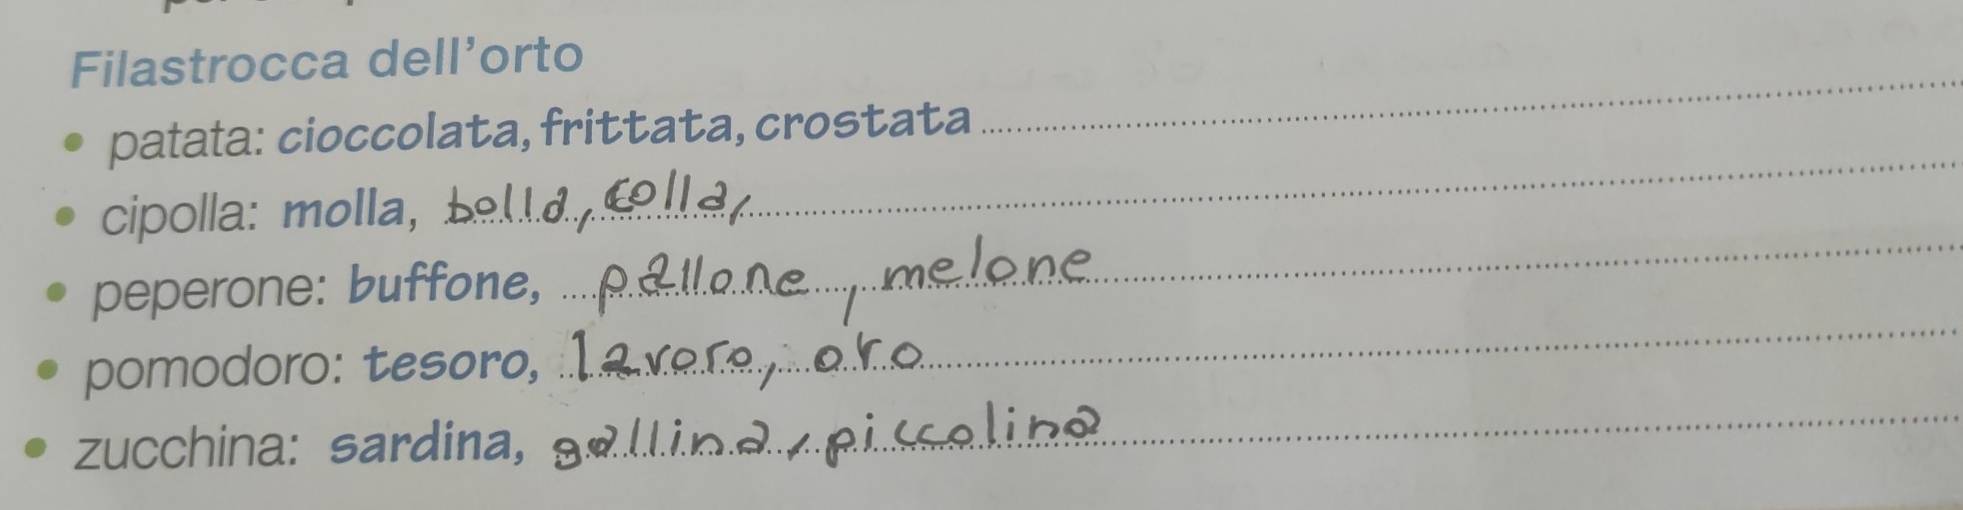 Filastrocca dell'orto
• patata: cioccolata, frittata, crostata
• cipolla: molla, bolla, colla,
• peperone: buffone, pallone, melone
• pomodoro: tesoro, lavoro, oro
• zucchina: sardina, gallina, piccolina